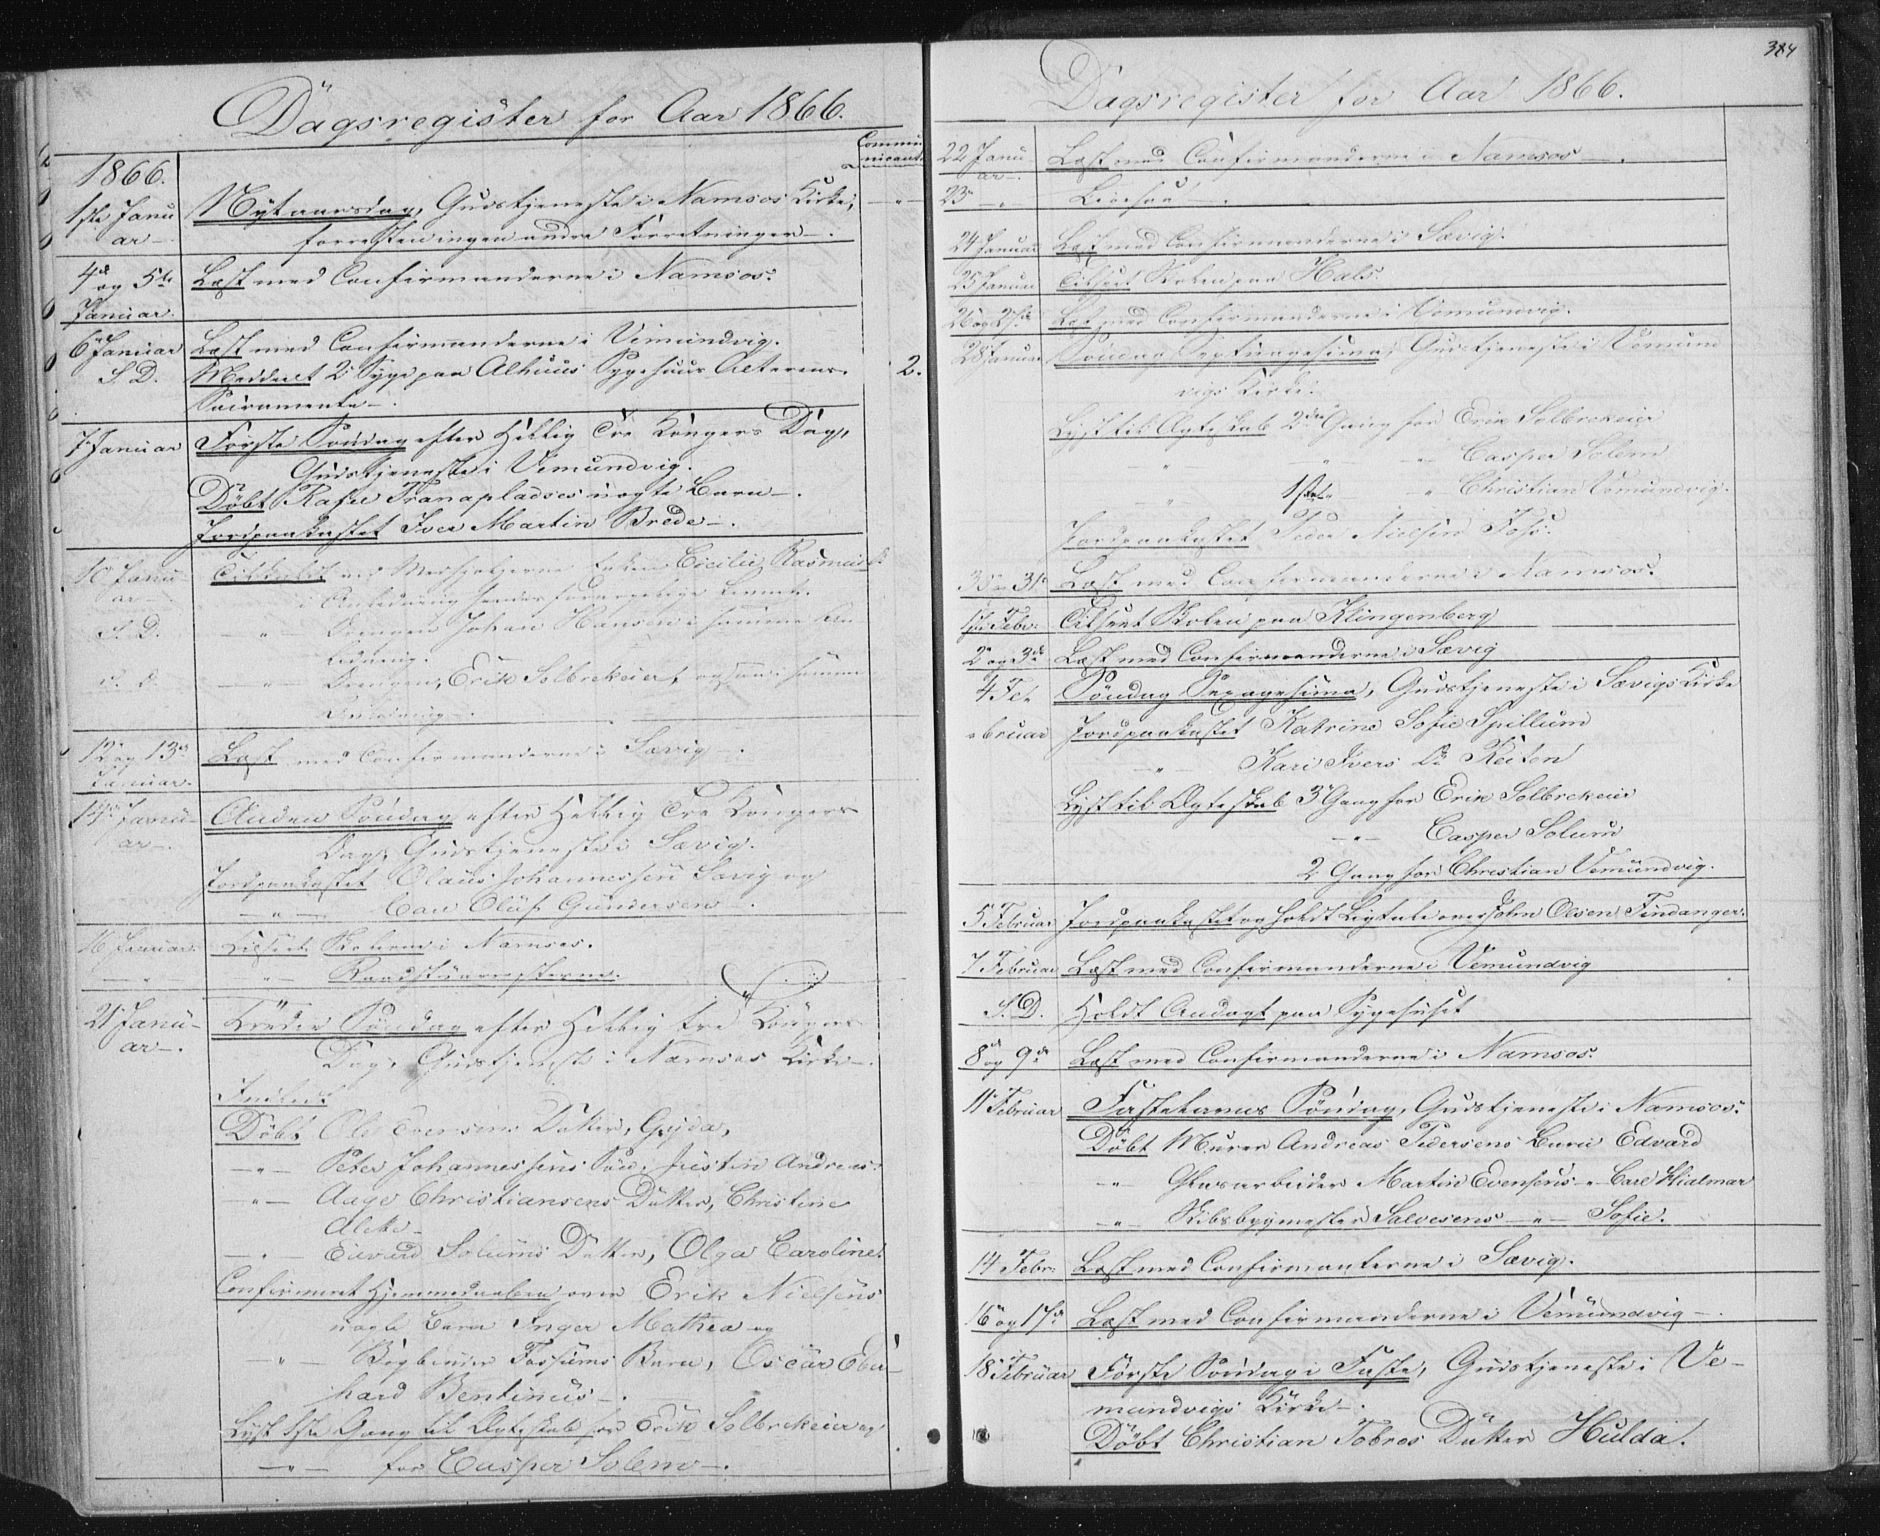 Dagsregister for Aar 1866.
Communicant.
1866.
1ste Januar
Nytaarsdag, Gudstjeneste i Namsos Kirke,
forresten ingen andre Forretninger.
4de og 5te Januar.
Læst med Confirmanderne i Namsos.
6 Januar
Læst med Confirmanderne i Vemundvig.
S. D.
Meddeelt 2 Syge paa Sygehuus Alterens 2.
Sacramente.
7 Januar
Første Søndag efter Hellig Tre Kongers Dag,
Gudstjeneste i Vemundvig.
Døbt Tranapladses uægte Barn.
Jordpaakastet Iver Martin Brede.
10 Januar
Enken Cicilie Rasmus
i Anledning hendes forargelige Levnet.
S. D.
Johan Hansen i samme An
ledning.
S. D.
Erik Solbrekeier, ogsaa i samme
Anledning.
12 og 13de Januar.
Læst med Confirmanderne i Sævig.
14de Januar.
Anden Søndag efter Hellig Tre Kongers
Dag, Gudstjeneste i Sævig.
Jordpaakastet Olaus Johannessen Sævig og
Carl Oluf Gundersen.
16 Januar
Skolerne i Namsos.
21 Januar.
Tredie Søndag efter Hellig tre Kongers
Dag, Gudstjeneste i Namsos Kirke.
Døbt Ole Datter, Gyda,
Peter Johannessens Søn, Justin Andreas.
Aage Christiansens Datter, Christine
Edvard Solums Datter, Olga Caroline.
Confirmeret Hjemmedaaben over Erik Nielsens
uægte Barn Inger Mathea og
Bogbinder Fossums Barn, Oscar Eber
hard Bentinus.
Lyst 1ste Gang til Ægteskab for Erik Solbrekeier og
for Casper Solem.
Dagsregister for Aar 1866.
384
22 Januar.
Læst med Confirmanderne i Namsos.
23
24 Januar
Læst med Confirmanderne i Sævig.
25 Januar
Skolen paa Hals.
26 og 27de
Læst med Confirmanderne i Vemundvig.
28 Januar
Søndag Septuagesima, Gudstjeneste i Vemund
vigs Kirke.
Lyst til Ægteskab 2den Gang for Erik Solbrekeier
Casper Solem
1ste Christian Vemundvig.
Jordpaakastet Peder Nielsen
30 31
Læst med Confirmanderne i Namsos.
1ste Febr.
Skolen paa Klingenberg
2 og 3de
Læst med Confirmanderne i Sævig
4 Februar
Søndag Sexagesima, Gudstjeneste i Sævigs Kirke
Jordpaakastet Katrine Sofie Spillum
Kari Ivers Dr Reiten
Lyst til Ægteskab 3 Gang for Erik Solbrekeier
Casper Solum
2 Gang for Christian Vemundvig.
5 Februar
Jordpaakastet og holdt Ligtale over John Olsen Tindanger.
7 Februar
Læst med Confirmanderne i Vemundvig
S. D.
Holdt Andagt paa Sygehuset
8 og 9de
Læst med Confirmanderne i Namsos.
11 Februar
Fastelavns Søndag, Gudstjeneste i Namsos.
Døbt Murer Andreas Pedersens Barn Edvard
Martin Evensens Carl Hialmar
Skibsbygmester Salvesens Sofie.
14 Febr.
Læst med Confirmanterne i Sævig.
16 og 17de
Læst med Confirmanderne i Vemundvig.
18 Februar
Første Søndag i Faste, Gudstjeneste i Ve-
mundvigs Kirke.
Døbt Christian Tobros Datter Hulda.